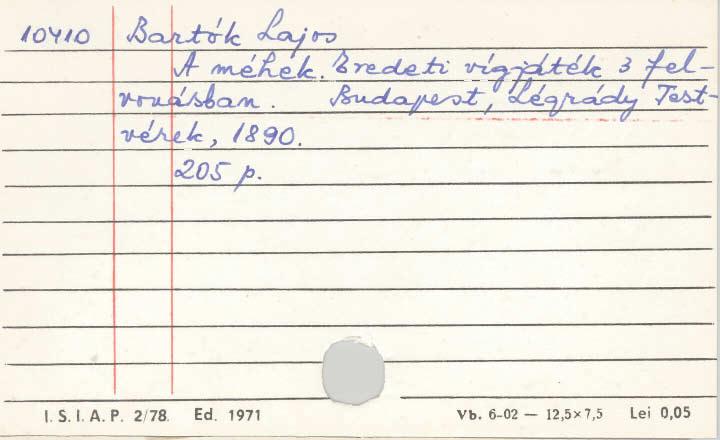 10410 Bartók Lajos
A méhek. Eredeti vígjáték 3 fel-
vonásban. Budapest, Légrády Test-
vérek, 1890.
205 p.
I. S. I. A. P. 2/78. Ed. 1971 Vb. 6-02 — 12,5×7,5 Lei 0,05